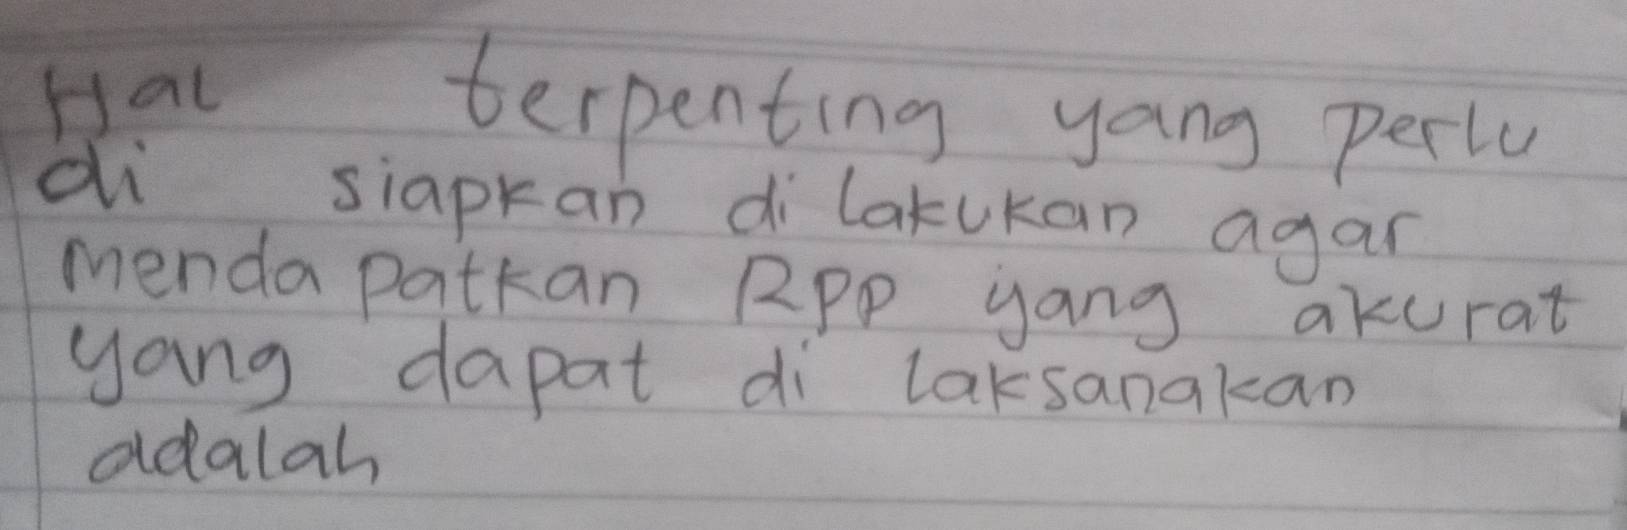 Hal terpenting yang perlu
di siapkan di lakukan agar
menda patkan RPP yang akurat
yang dapat di laksanakan
adalah